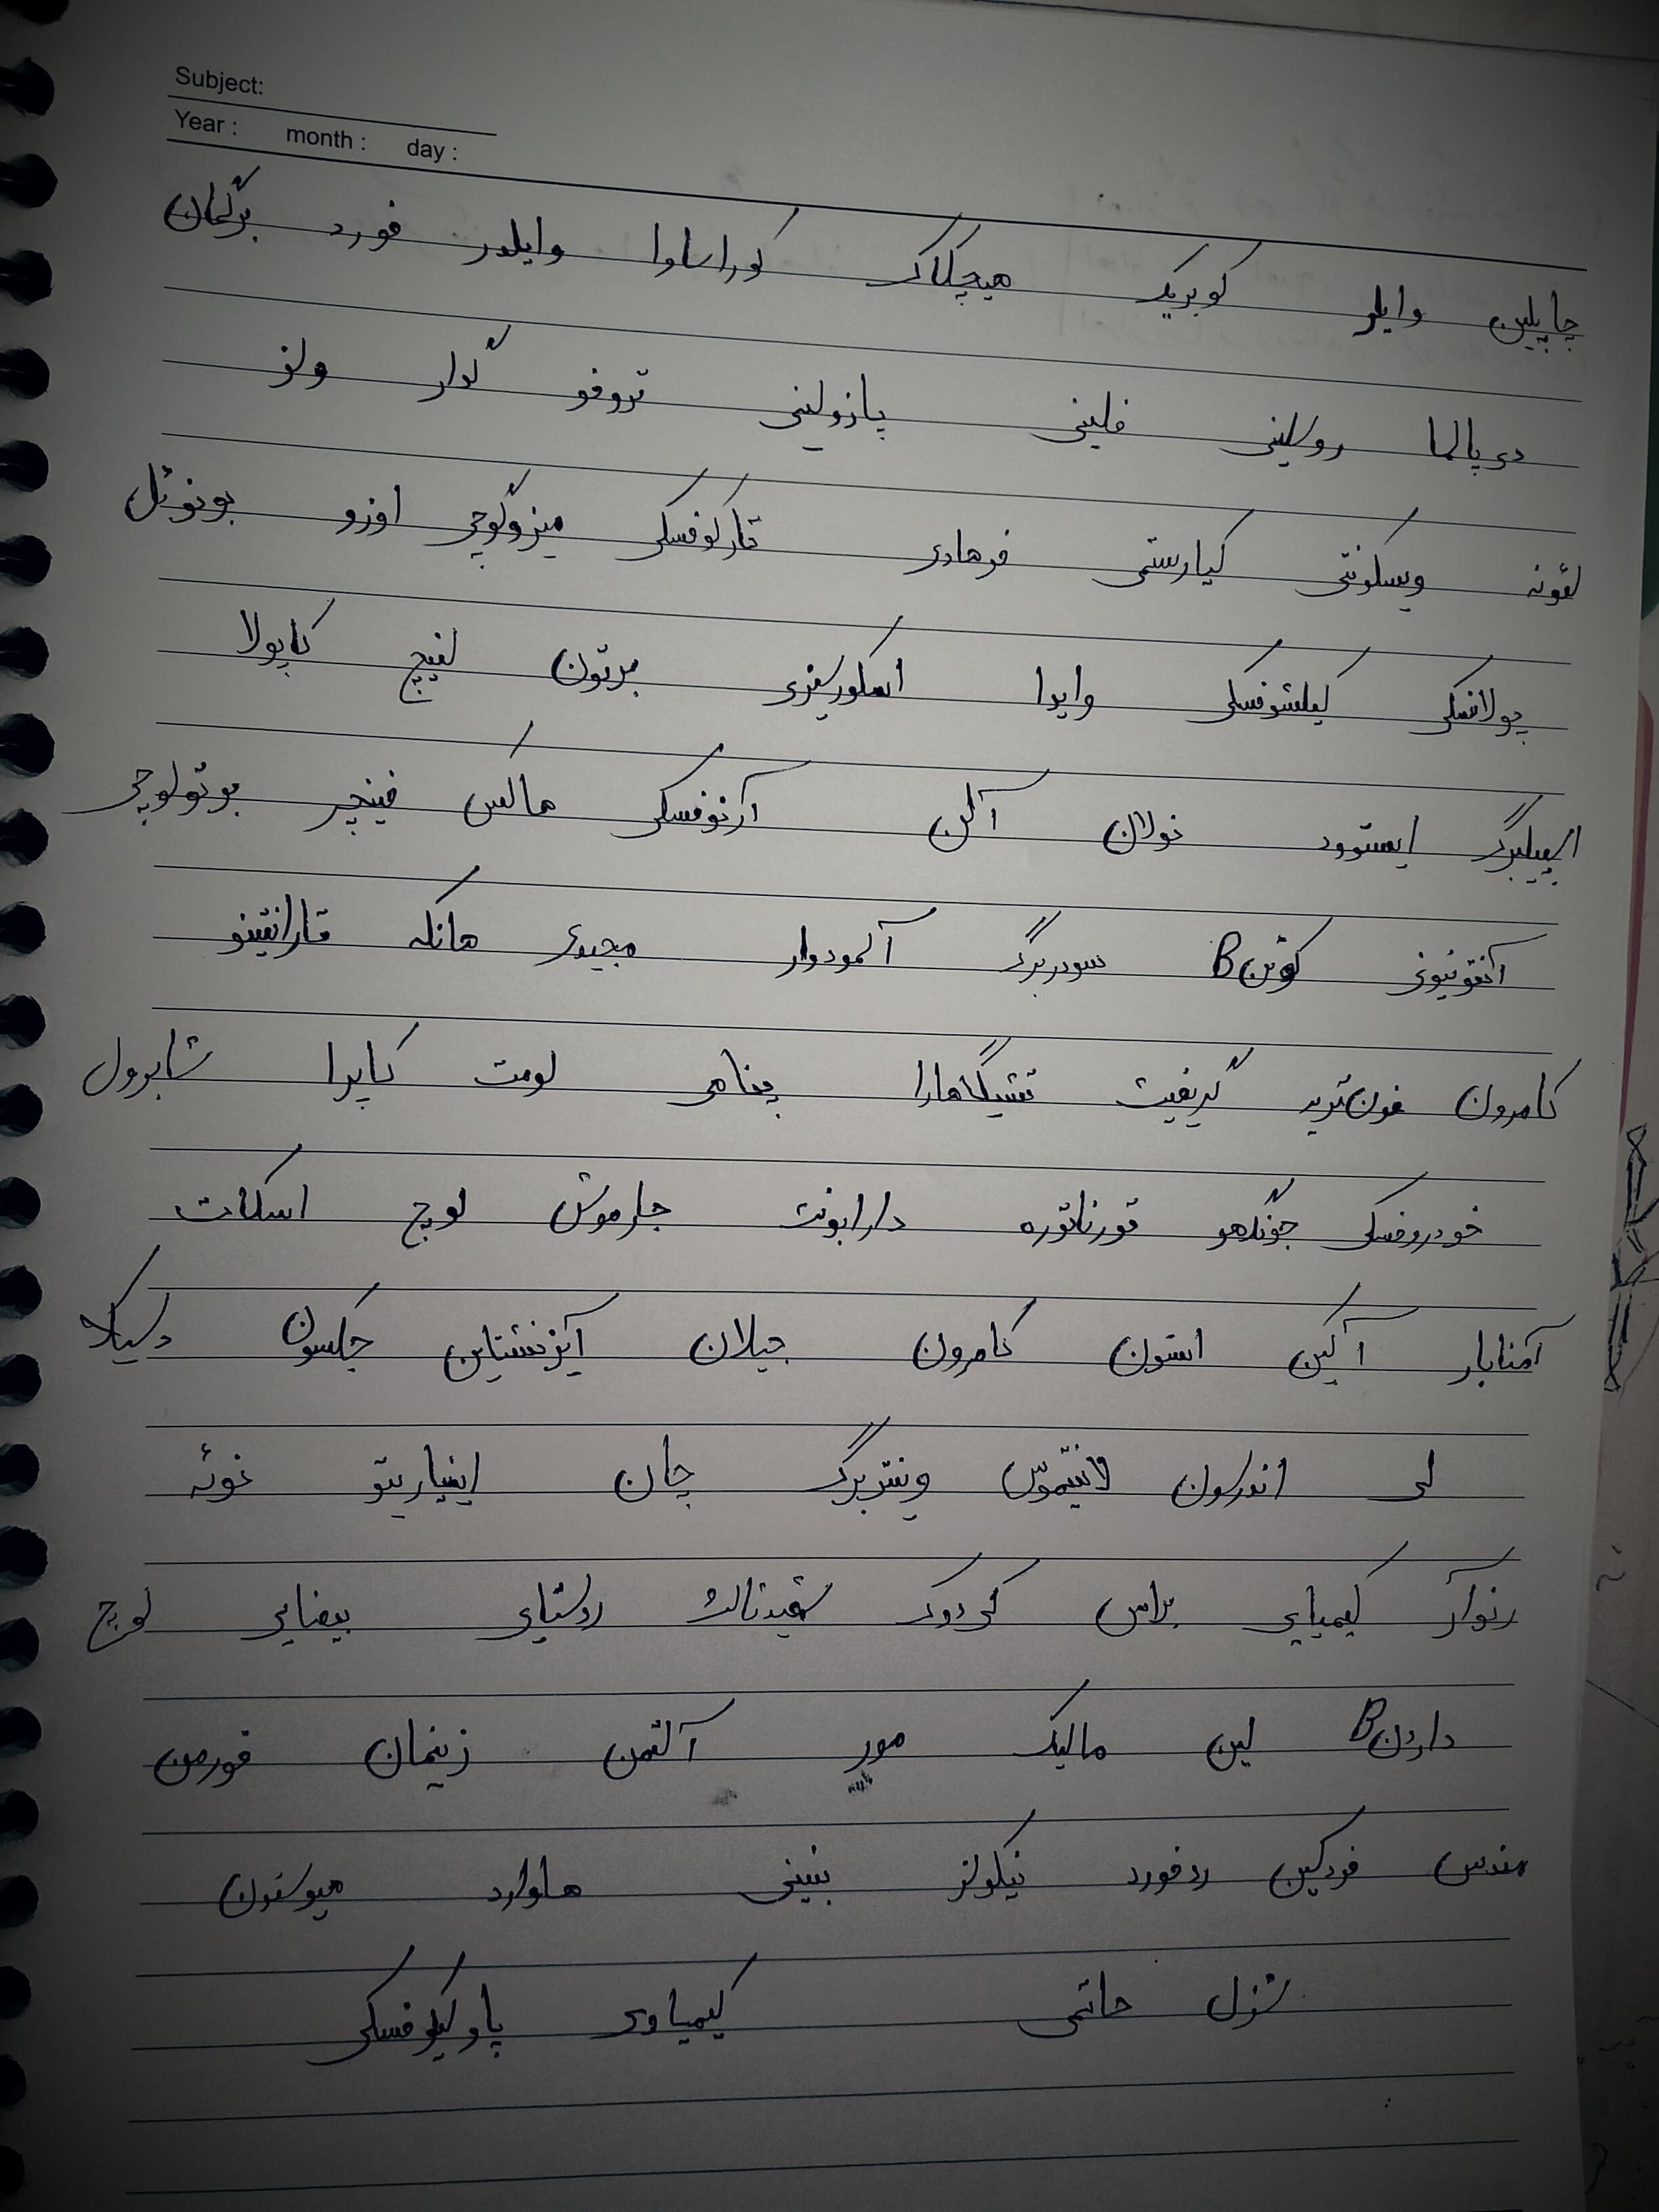 Subject:
Year : month : day :
چاپلین وایلر کوبریک هیچکاک کوراساوا وایلدر فورد برگمان
دی پالما روسلینی فلینی پازولینی تروفو گدار ولز
لئونه ویسکونتی کیارستمی فرهادی تارکوفسکی میزوگوچی اوزو بونوئل
پولانسکی کیلشوفسکی وایدا اسکورسیزی برتون لینچ کاپولا
اسپیلبرگ ایستوود نولان آلن آرنوفسکی هاکس فینچر برتولوچی
آنتونیونی کوئنB سودربرگ آلمودوار مجیدی هانکه تارانتینو
کامرون فون‌تریه گریفیث تشیگاهارا پناهی لومت کاپرا شابرول
خودروفسکی جونگهو تورناتوره دارابونت جارموش لوچ اسکات
آمنابار آکین استون کامرون جیلان آیزنشتاین جکسون دسیکا
لی اندرسون لانتیموس وینتربرگ چان ایناریتو نوئه
رنوآر کیمیایی براس کی دوک شهیدثالث روستایی بیضایی لوچ
داردنB لین مالیک مور آلتمن زینمان فورمن
مندس فردکین ردفورد نیکولز بنینی هاوارد هیوستون
شزل حاتمی کیمیاوی پاولیکوفسکی